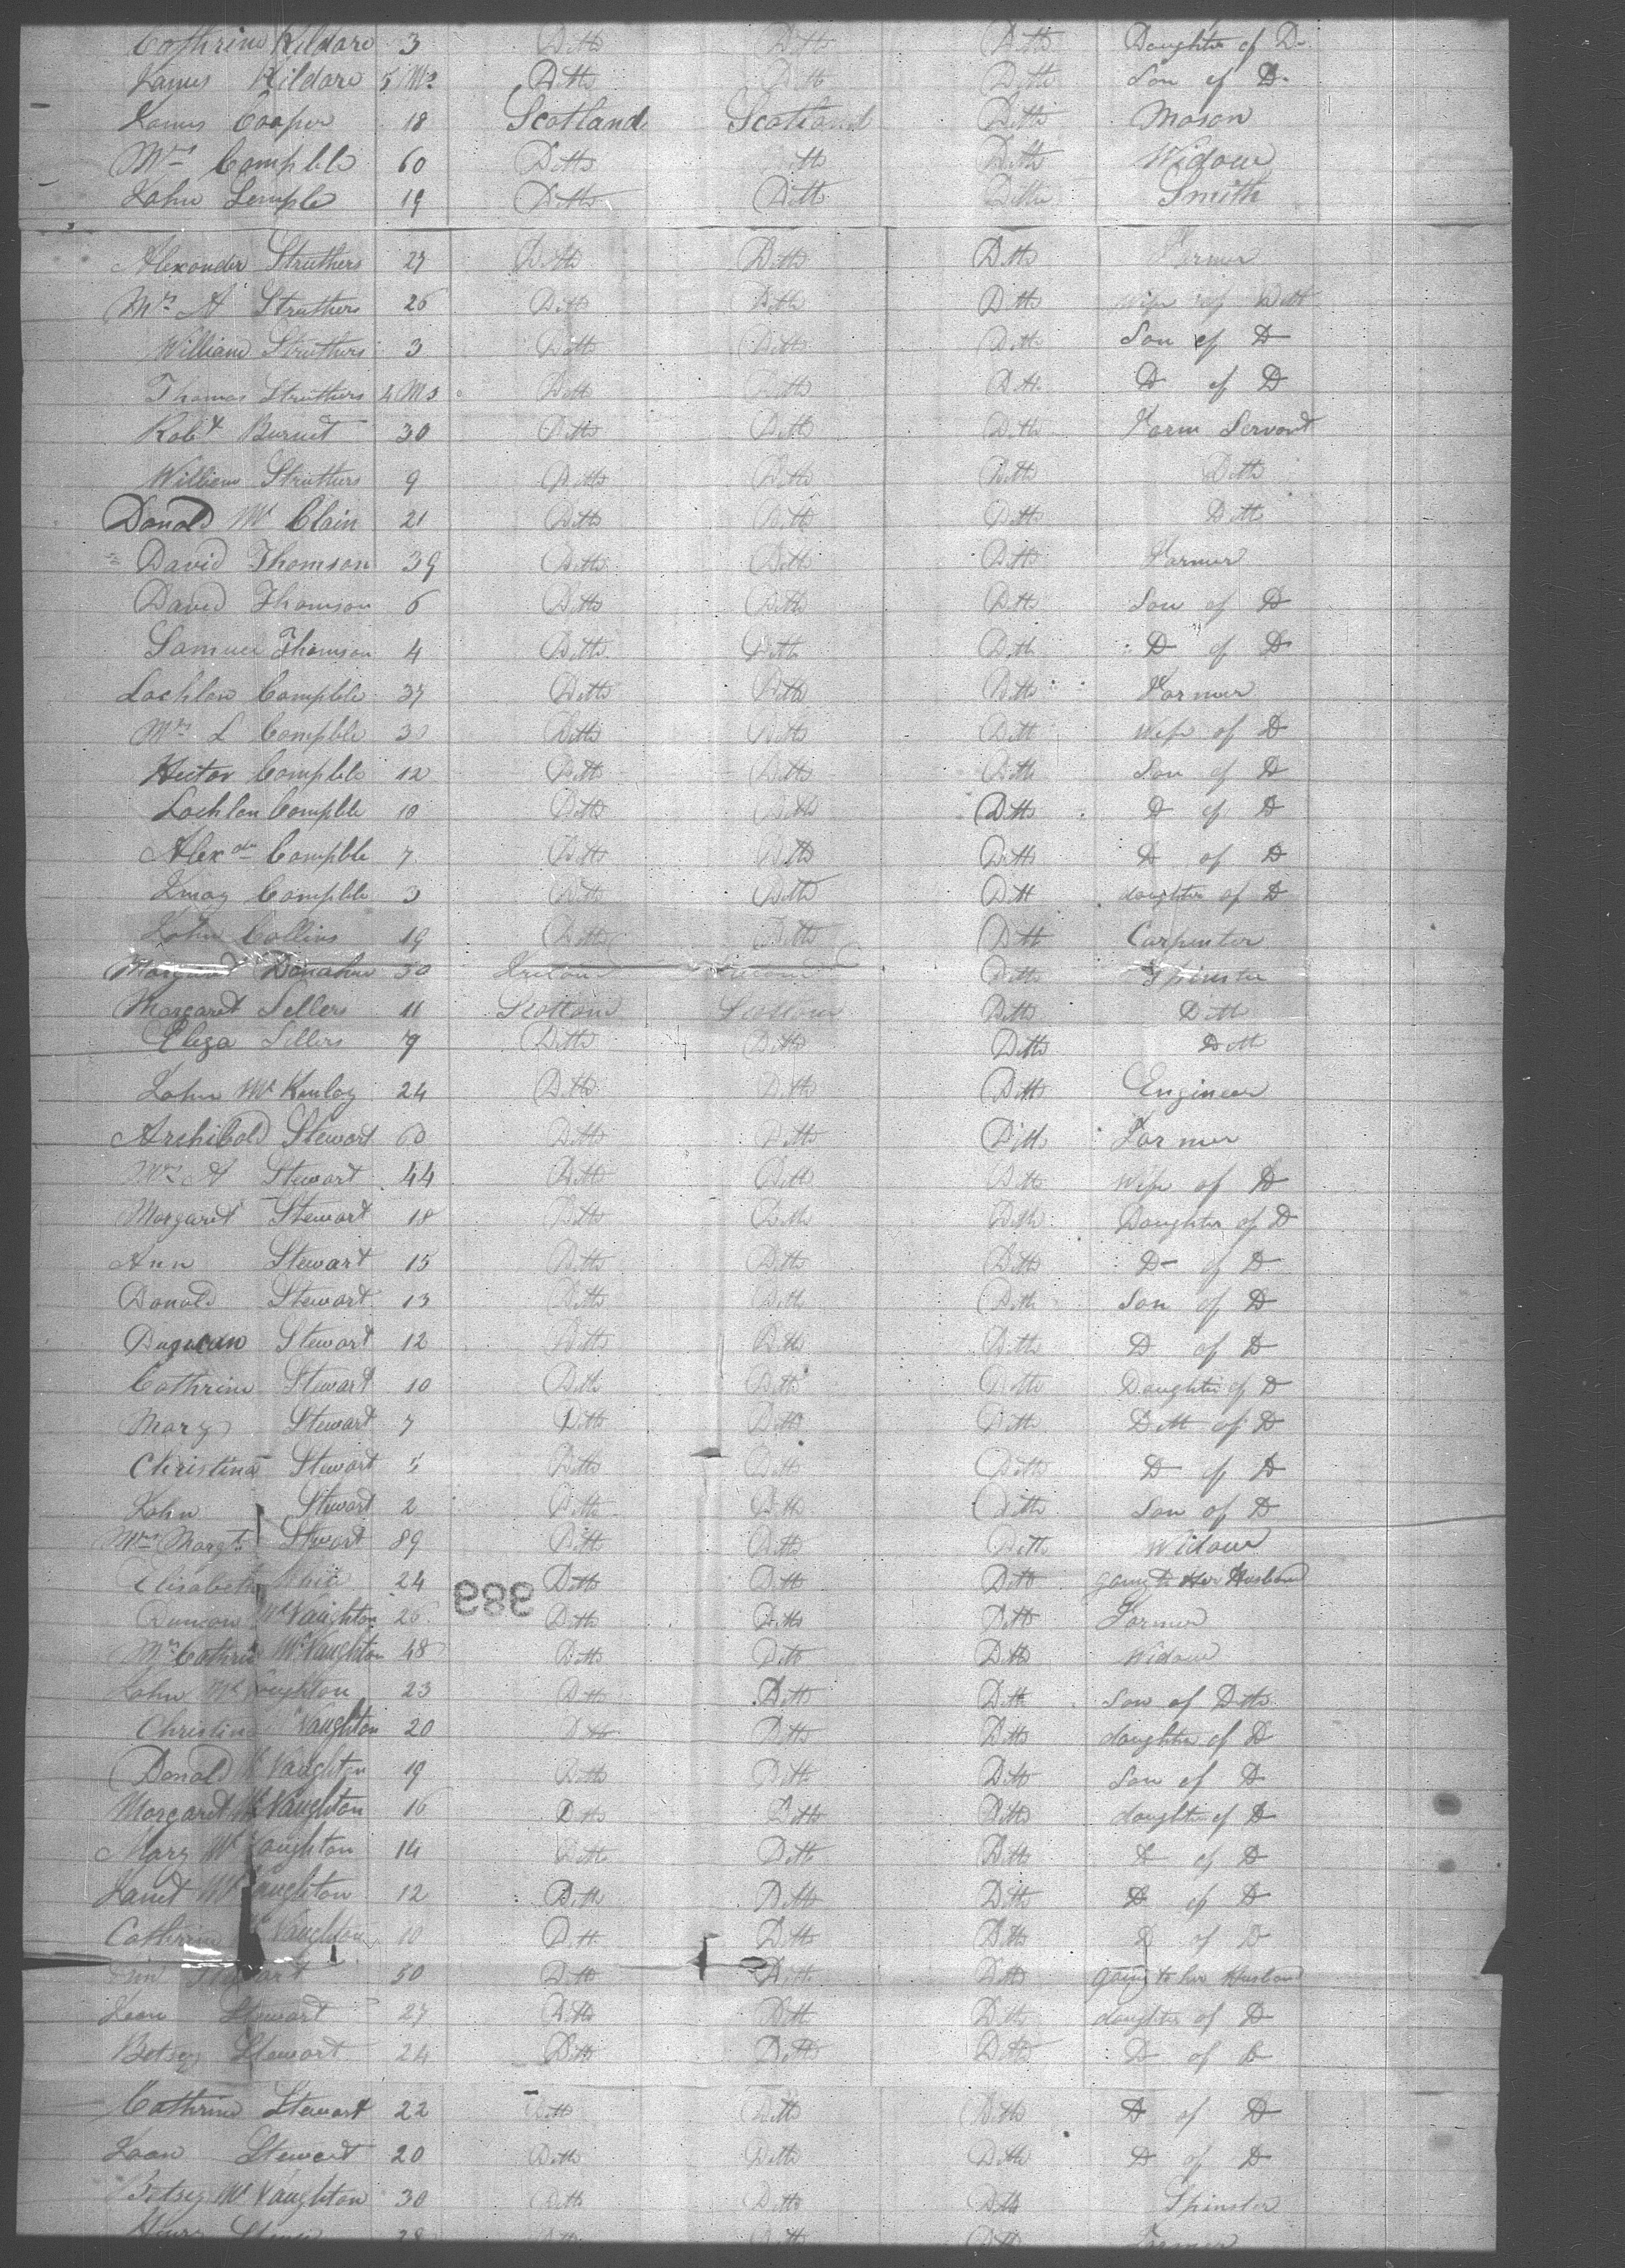 Cathrine Kildare 3 Ditto Ditto Ditto Daughter of D-
James Kildare 5 Ms Ditto Ditto Ditto Son of D-
James Cooper 18 Scotland Scotland Ditto Mason
Mrs Campble 60 Ditto Ditto Ditto Widow
John Semple 19 Ditto Ditto Ditto Smith
Alexander Struthers 27 Ditto Ditto Ditto Farmer
Mrs A Struthers 26 Ditto Ditto Ditto Wife of Ditto
William Struthers 3 Ditto Ditto Ditto Son of D
Thomas Struthers 4 Ms Ditto Ditto Ditto D of D
Robt Burnet 30 Ditto Ditto Ditto Farm Servant
William Struthers 9 Ditto Ditto Ditto Ditto
Donald Mc Clain 21 Ditto Ditto Ditto Ditto
David Thomson 39 Ditto Ditto Ditto Farmer
David Thomson 6 Ditto Ditto Ditto Son of D
Samuel Thomson 4 Ditto Ditto Ditto D of D
Lachlan Campble 37 Ditto Ditto Ditto Farmer
Mrs L Campble 30 Ditto Ditto Ditto Wife of D
Hector Campble 12 Ditto Ditto Ditto Son of D
Lachlan Campble 10 Ditto Ditto Ditto D of D
Alexdr Campble 7 Ditto Ditto Ditto D of D
Campble 3 Ditto Ditto Ditto daughter of D
John Collins 19 Ditto Ditto Ditto Carpenter
Margaret Donahue 50 Ireland Ireland Ditto Spinster
Margaret Sellers 11 Scotland Scotland Ditto Ditto
Eliza Sellers 9 Ditto Ditto Ditto Ditto
John Mc Kinlay 24 Ditto Ditto Ditto Engineer
Archibald Stewart 60 Ditto Ditto Ditto Farmer
Mrs A Stewart 44 Ditto Ditto Ditto Wife of D
Margaret Stewart 18 Ditto Ditto Ditto Daughter of D
Ann Stewart 15 Ditto Ditto Ditto D- of D
Donald Stewart 13 Ditto Ditto Ditto Son of D
Stewart 12 Ditto Ditto Ditto D of D
Cathrine Stewart 10 Ditto Ditto Ditto Daughter of D
Mary Stewart 7 Ditto Ditto Ditto Ditto of D
Christina Stewart 5 Ditto Ditto Ditto D of D
John Stewart 2 Ditto Ditto Ditto Son of D
Mrs Margt Stewart 89 Ditto Ditto Ditto Widow
Elisabeth 24 Ditto Ditto Ditto going to Her Husband
383
Duncan Mc Vaughton 26 Ditto Ditto Ditto Farmer
Mrs Cathrin Mc Vaughton 48 Ditto Ditto Ditto Widow
John Mc Vaughton 23 Ditto Ditto Ditto Son of Ditto
Christina Mc Vaughton 20 Ditto Ditto Ditto daughter of D
Donald Mc Vaughton 19 Ditto Ditto Ditto Son of D
Margaret Mc Vaughton 16 Ditto Ditto Ditto daughter of D
Mary Mc Vaughton 14 Ditto Ditto Ditto D of D
Janet Mc Vaughton 12 Ditto Ditto Ditto D of D
Cathrine Mc Vaughton 10 Ditto Ditto Ditto D of D
Stewart 50 Ditto Ditto Ditto going to her Husband
Jean Stewart 27 Ditto Ditto Ditto daughter of D
Betsey Stewart 24 Ditto Ditto Ditto D of D
Cathrine Stewart 22 Ditto Ditto Ditto D of D
Joan Stewart 20 Ditto Ditto Ditto D of D
Betsey Mc Vaughton 30 Ditto Ditto Ditto Spinster
Henry 28 Ditto Ditto Ditto Farmer